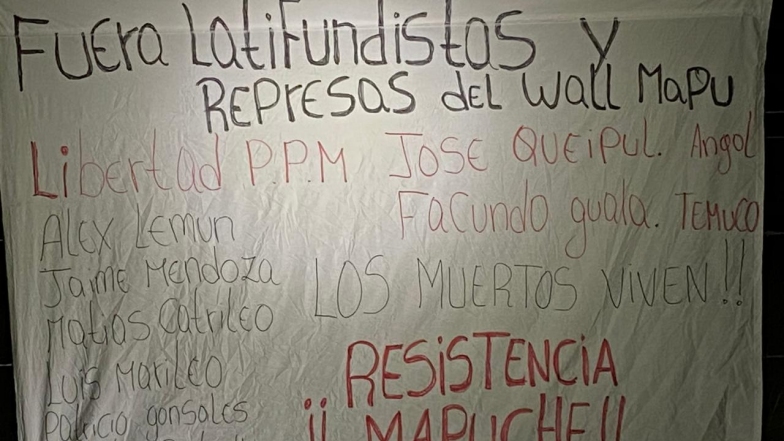 Fuera Latifundistas y
Represas del Wall Mapu
Libertad P.P.M Jose Queipul. Angol
Facundo guala. Temuco
Alex Lemun
Jaime Mendoza
LOS MUERTOS ViVEN!!
Matias Catrileo
Luis Marileo
RESiSTENCiA
Patricio gonsales
¡¡ MAPUCHE!!